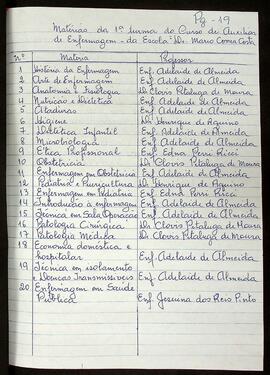 Pg-19
Matérias da 1ª turma do Curso de Auxiliar
de Enfermagem - da Escola "Dr. Mario Correa Costa
nº Matéria Professor
1 História da Enfermagem Enf. Adelaide de Almeida
2 Arte de Enfermagem Enf. Adelaide de Almeida
3 Anatomia e Fisiologia Dr Clovis Pitaluga de Moura
4 Nutrição e Dietética Enf. Adelaide de Almeida
5 Ataduras Enf. Adelaide de Almeida
6 Higiene Dr Henrique de Aquino
7 Dietética Infantil Enf. Adelaide de Almeida
8 Microbiologia Enf. Adelaide de Almeida
9 Ética Profissional Enf. Edna Perri Ricci
10 Obstetrícia Dr Clovis Pitaluga de Moura
11 Enfermagem em Obstetrícia Enf. Adelaide de Almeida
12 Pediatria e Puericultura Dr Henrique de Aquino
13 Enfermagem em Pediatria Enf. Edna Perri Ricci
14 Introdução à enfermagem Enf. Adelaide de Almeida
15 Técnica em Sala Operação Enf. Adelaide de Almeida
16 Patologia Cirúrgica Dr Clovis Pitaluga de Moura
17 Patologia Médica Dr Clovis Pitaluga de Moura
18 Economia doméstica e
hospitalar Enf. Adelaide de Almeida
19 Técnica em isolamento
e Doenças Transmissíveis Enf. Adelaide de Almeida
20 Enfermagem em Saúde
Pública Enf. Jesuina dos Reis Pinto